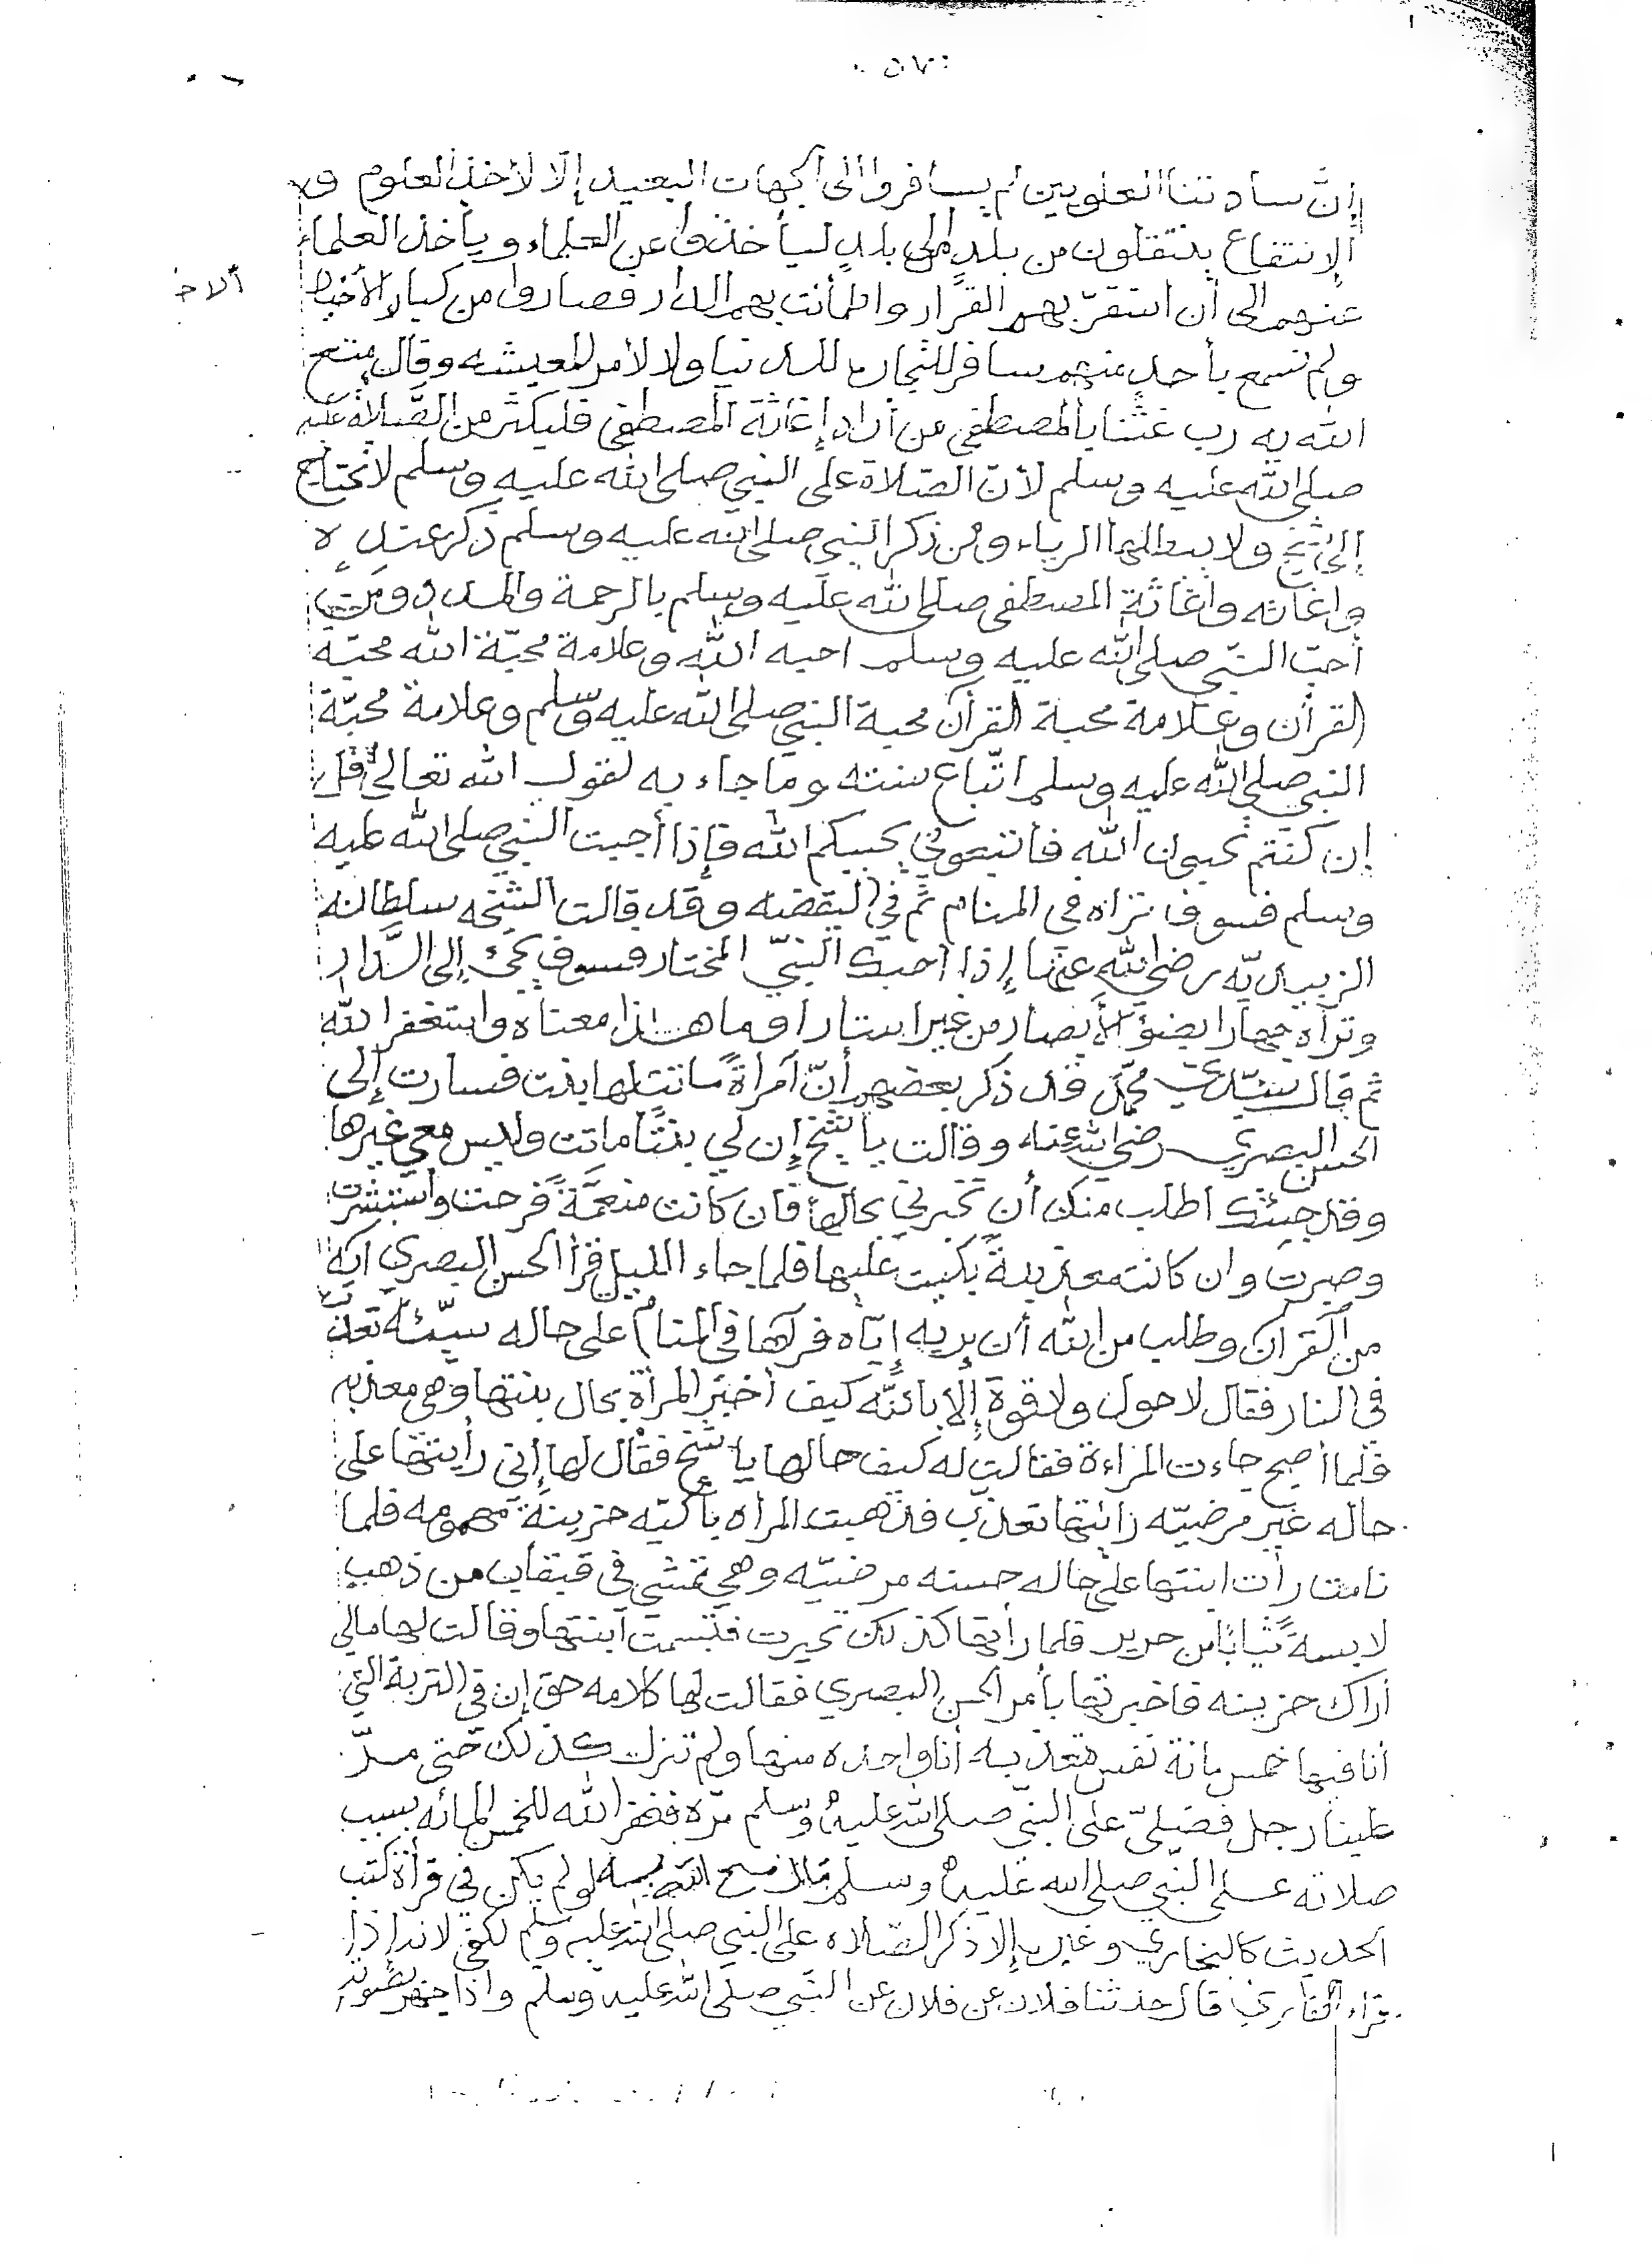 ٥٧٠
إنَّ سادتنا العلويين لم يسافروا الى الجهات البعيده إلّا لأخذ العلوم و
الإنتفاع ينتقلون من بلدٍ الى بلدٍ ليأخذوا عن العلماء ويأخذ العلماء
عنهم الى أن استقرّ بهم القرار واطمأنت بهم الدار وصاروا من كبار الأخيار
ألاخ
ولم نسمع بأحدٍ منهم سافر للتجاره للدنيا ولا لأمر المعيشه وقال متع
الله به رب غثنا بالمصطفى من أراد إغاثة المصطفى فليكثر من الصّلاة عليه
صلى الله عليه وسلم لأن الصّلاة على النبي صلى الله عليه وسلم لا تحتاج
إلى شيخ ولا يدخلها الرياء ومن ذكر النبي صلى الله عليه وسلم ذكر عنده
واغاثه واغاثة المصطفى صلى الله عليه وسلم بالرحمة والمدد ومن
أحبّ النبّي صلى الله عليه وسلم احبه الله وعلامة محبّة الله محبّة
القرأن وعلامة محبة القرآن محبة النبي صلى الله عليه وسلم وعلامة محبّة
النبي صلى الله عليه وسلم اتّباع سنته وما جاء به لقول الله تعالى قل
إن كنتم تحبون الله فاتبعوني يحببكم الله فإذا أحببت النبي صلى الله عليه
وسلم فسوف تراه في المنام ثم في اليقضه وقد قالت الشيخه سلطانه
الزبيديّه رضي الله عنها إذا احبك النبيّ المختار فسوف يجئ إلى الدّار
وتراه جهارا بضؤ الأبصار من غير استار او ما هذا معناه واستغفر الله
ثم قال سيّدي محمّد قد ذكر بعضهم أنّ امرأةً ماتت لها بنت فسارت إلى
الحسن البصري رضي الله عنه وقالت يا شيخ إن لي بنتًا ماتت وليس معي غيرها
وقد جئتك اطلب منك أن تخبرني بحالها فان كانت منعمّةً فرحت واستبشرت
وصبرت وان كانت معذبةً بكيت عليها فلما جاء الليل قرأ الحسن البصري ايه
من القرآن وطلب من الله أن يريه إيّاه فرآها في المنام على حاله سيّئه تعذب
في النار فقال لا حول ولا قوة إلا بالله كيف أخبر المرأة بحال بنتها وهي معذبه
فلما أصبح جاءت المراءة فقالت له كيف حالها يا شيخ فقال لها إني رأيتها على
حاله غير مرضيّه رأيتها تعذب فذهبت المراه باكيّه حزينةً مهمومه فلما
نامت رأت ابنتها على حاله حسنه مرضيّه وهي تمشي في قبقاب من ذهب
لابسةً ثيابًا من حرير فلما رأتها كذلك تحيرت فتبسمت ابنتها وقالت لها مالي
أراك حزينه فاخبرتها بأمر الحسن البصري فقالت لها كلامه حق إن في التربة التي
أنا فيها خمس مائة نفس متعذبه أنا واحده منها ولم تزل كذلك حتى مرّ
علينا رجل فصلّى على النبيّ صلى الله عليه وسلم مرّه فغفر الله للخمس المائه بسبب
صلاته على النبّي صلى الله عليه وسلم قال متع الله به لو لم يكن في قرأة كتب
الحديث كالبخاري وغيره إلا ذكر الصّلاه على النبي صلى الله عليه وسلم لكفى لانه إذا
قراء القاري قال حدثنا فلان عن فلان عن النبّي صلى الله عليه وسلم واذا جهر بصوته